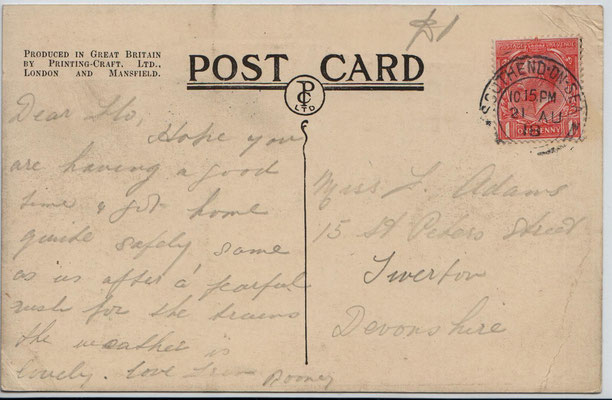 PRODUCED IN GREAT BRITAIN
BY PRINTING-CRAFT, LTD.,
LONDON AND MANSFIELD.
POST CARD
PC
LTD
$1
SOUTHEND-ON-SEA
10.15 PM
21 AU
18
ONE PENNY
Dear Flo,
Hope you
are having a good
time & got home
quite safely same
as us after a fearful
rush for the trains
the weather is
lovely. Love from
Miss F. Adams
15 St Peters Street
Tiverton
Devonshire